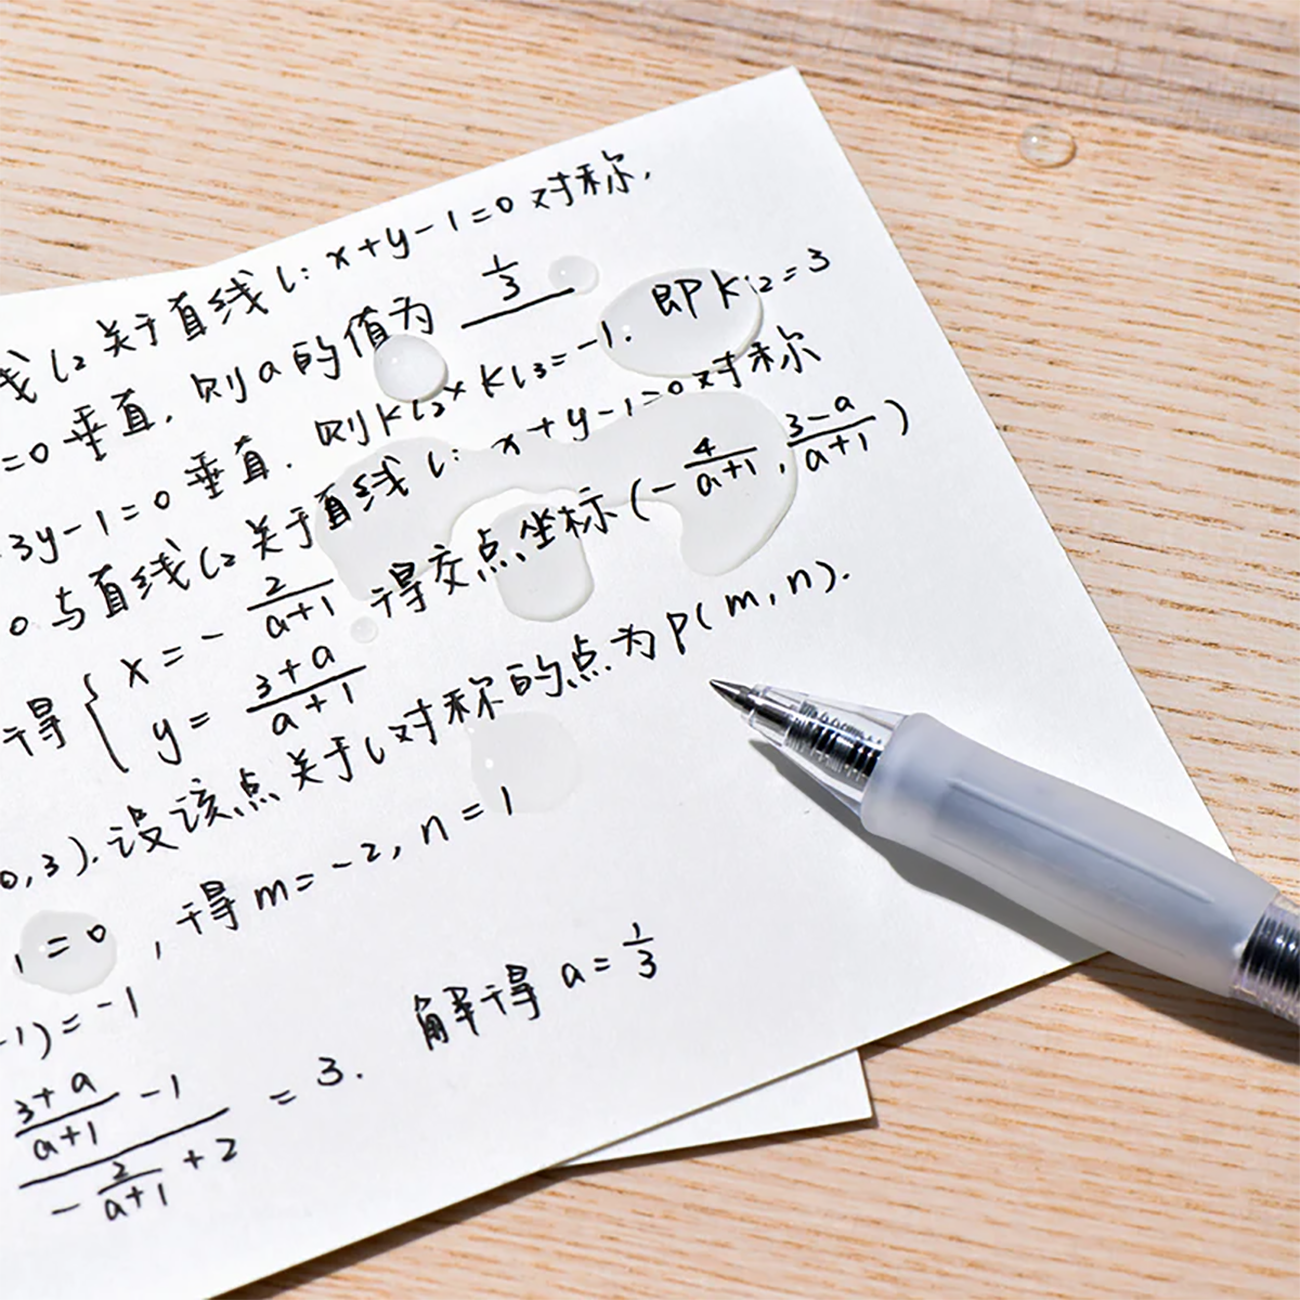 线 l₂ 关于直线 l: x+y-1=0 对称,
=0 垂直, 则 a 的值为 1/3
3y-1=0 垂直. 则 Kl₂×Kl₃=-1. 即 Kl₂=3
0 与直线 l₂ 关于直线 l: x+y-1=0 对称
得 { x=-2/(a+1) y=(3+a)/(a+1) 得交点坐标 (-4/(a+1), (3-a)/(a+1))
0,3). 设该点关于 l 对称的点为 P(m,n).
1=0, 得 m=-2, n=1
-1)=-1
((3+a)/(a+1) -1)/(-2/(a+1) +2) =3. 解得 a=1/3